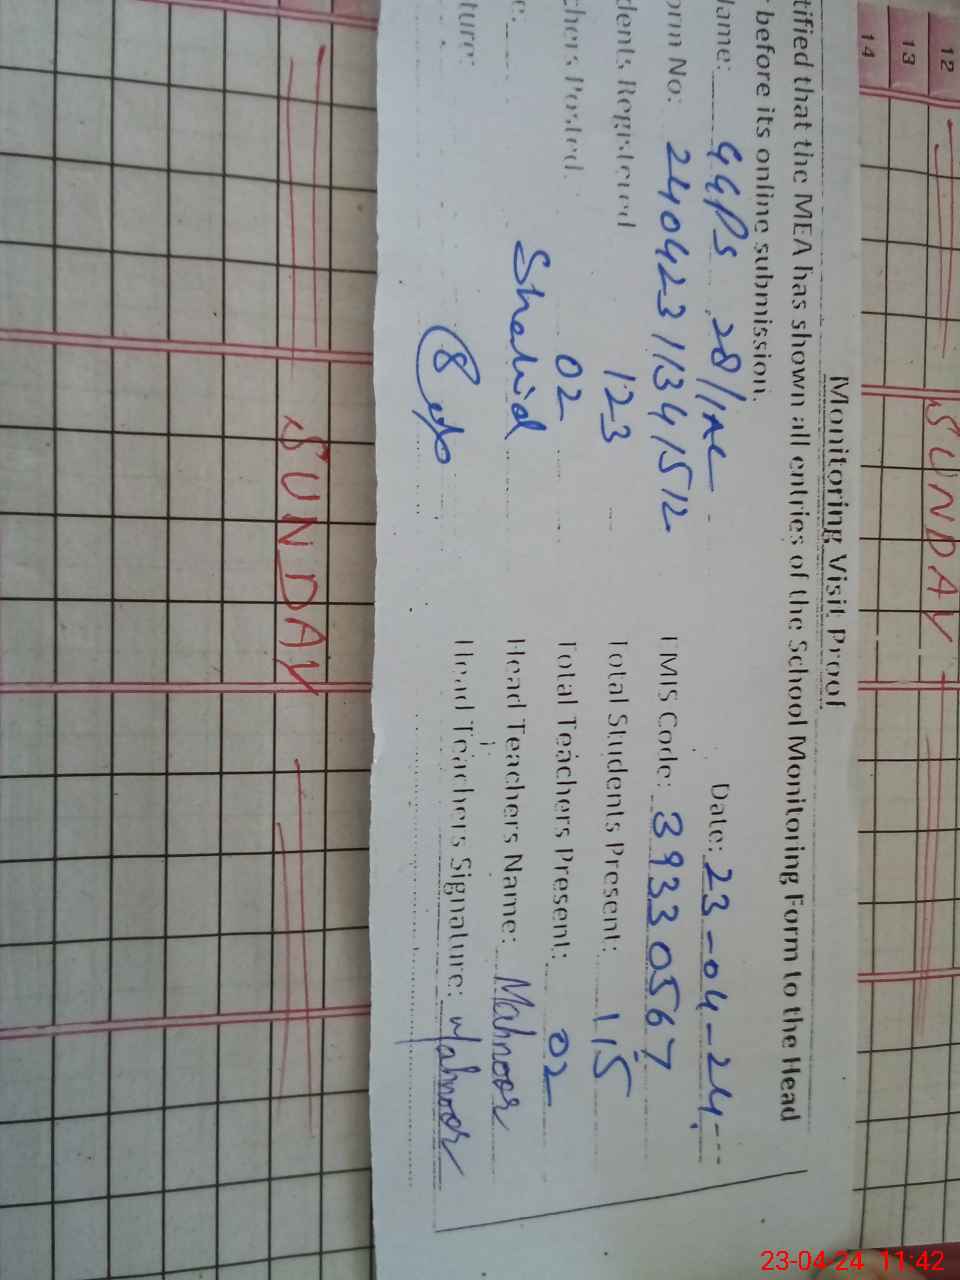 12
13
14
SUNDAY
Monitoring Visit Proof
tified that the MEA has shown all entries of the School Monitoring Form to the Head
before its online submission.
Name: GGPS 28/1AL Date: 23-04-24
orm No: 24042311341512 EMIS Code: 39330567
dents Registered 123 Total Students Present: 115
chers Posted. 02 Total Teachers Present: 02
e: Shahid Head Teachers Name: Mahnoor
ture: Head Teachers Signature: Mahnoor
SUNDAY
23-04-24 11:42